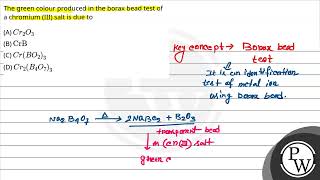 The green colour produced in the borax bead test of
a chromium (III) salt is due to
(A) Cr₂O₃
(B) CrB
(C) Cr(BO₂)₃
(D) Cr₂(B₄O₇)₃
Key concept → Borax bead
test
It is an identification
test of metal ion
using borax bead.
Na₂B₄O₇ —Δ→ 2NaBO₂ + B₂O₃
transparent bead
salt
green c
PW